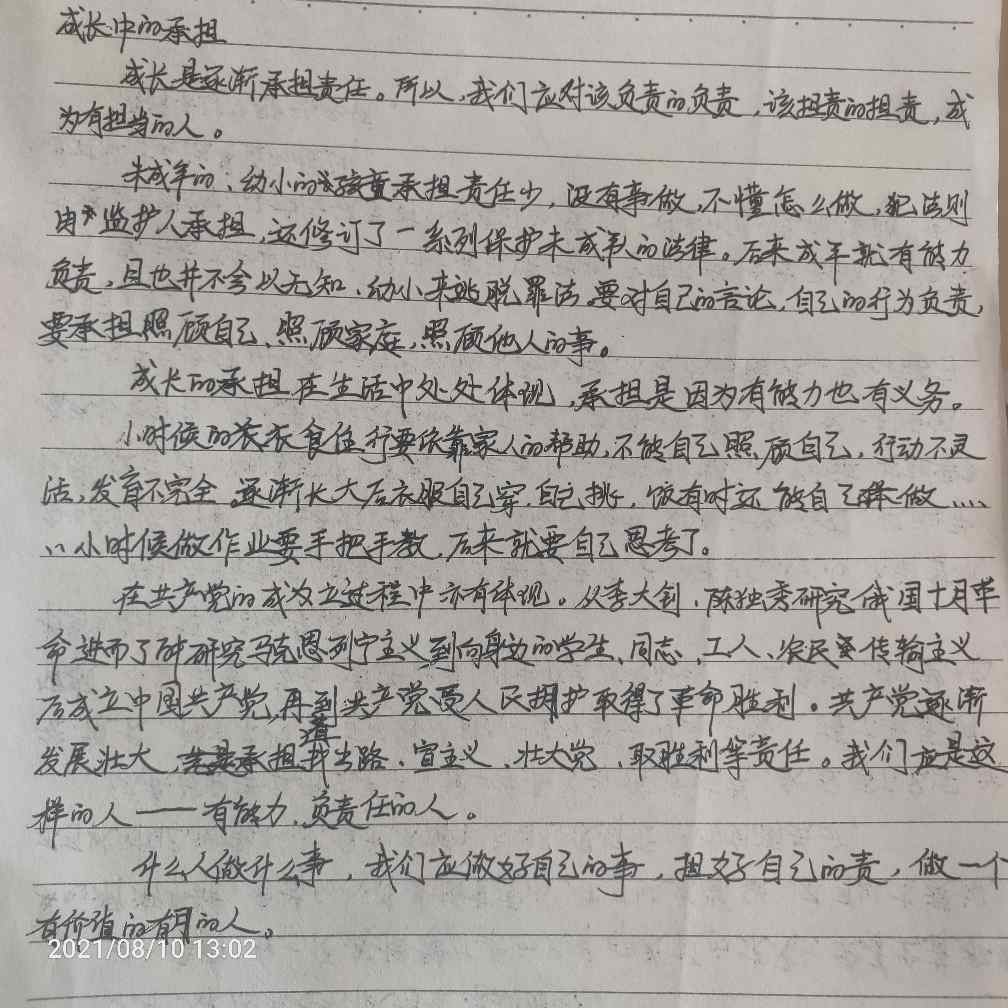 成长中的承担
成长是逐渐承担责任。所以,我们应对该负责的负责,该担责的担责,成
为有担当的人。
未成年的、幼小的孩童承担责任少,没有事做,不懂怎么做,犯法则
由监护人承担,还修订了一系列保护未成年人的法律。后来成年就有能力
负责,且也并不会以无知、幼小来逃脱罪法。要对自己的言论,自己的行为负责,
要承担照顾自己、照顾家庭,照顾他人的事。
成长的承担在生活中处处体现,承担是因为有能力也有义务。
小时候的衣食住行要依靠家人的帮助,不能自己照顾自己,行动不灵
活,发育不完全。逐渐长大后衣服自己穿,自己挑,饭有时还能自己做……
……小时候做作业要手把手教,后来就要自己思考了。
在共产党的成立过程中亦有体现。从李大钊、陈独秀研究俄国十月革
命进而了研究马克思列宁主义到向身边的学生、同志、工人、农民传输主义
后成立中国共产党,再到共产党受人民拥护取得了革命胜利。共产党逐渐
发展壮大,承担找道出路、宣主义、壮大党、取胜利等责任。我们应是这
样的人——有能力、负责任的人。
什么人做什么事,我们应做好自己的事,担好自己的责,做一个
有价值的有用的人。
2021/08/10 13:02